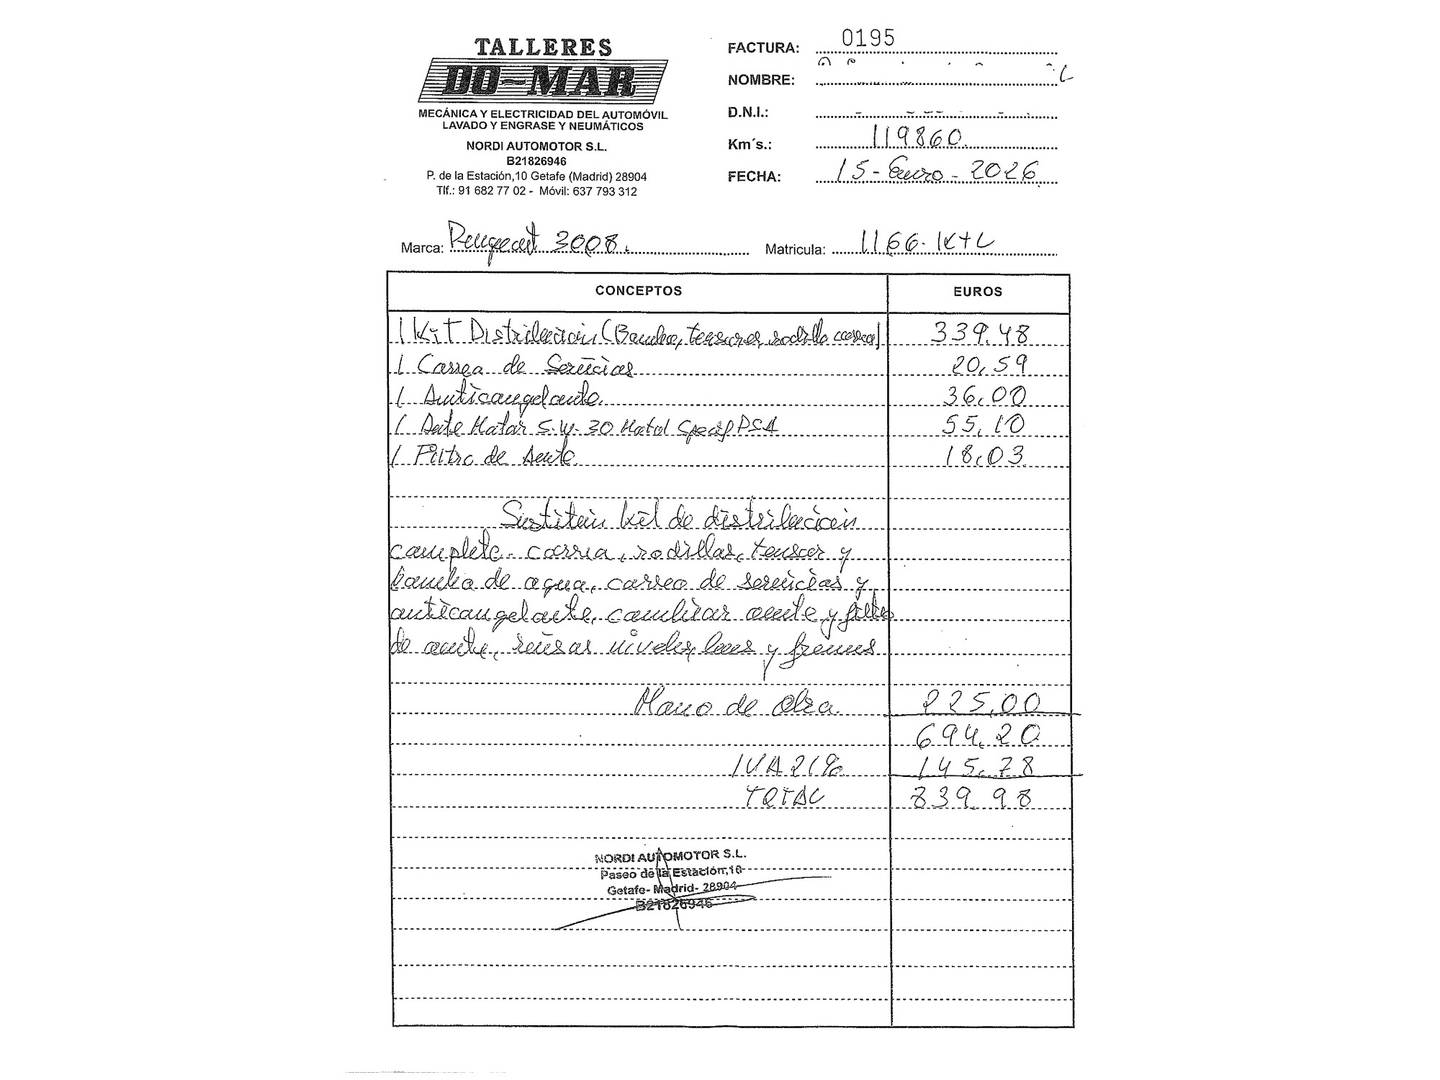 TALLERES
DO-MAR
MECÁNICA Y ELECTRICIDAD DEL AUTOMÓVIL
LAVADO Y ENGRASE Y NEUMÁTICOS
NORDI AUTOMOTOR S.L.
B21826946
P. de la Estación,10 Getafe (Madrid) 28904
Tlf.: 91 682 77 02 - Móvil: 637 793 312
FACTURA: 0195
NOMBRE:
D.N.I.:
Km´s.: 119860
FECHA: 15-Enero-2026
Marca: Peugeot 3008. Matricula: 1166-KHL
CONCEPTOS EUROS
1 Kit Distribución (Bomba, tensores, rodillo, correa) 339,48
1 Correa de Servicios 20,59
1 Anticongelante 36,00
1 Aceite Motor 5-W-30 Motul Specif PSA 55,10
1 Filtro de Aceite 18,03
Sustituir kit de distribución
completo. correa, rodillos, tensor y
bomba de agua, correa de servicios y
anticongelante, cambiar aceite y filtro
de aceite, revisar niveles, luces y frenos
Mano de Obra 225,00
694,20
IVA 21% 145,78
TOTAL 839,98
NORDI AUTOMOTOR S.L.
Paseo de la Estación,10
Getafe- Madrid- 28904
B21826946